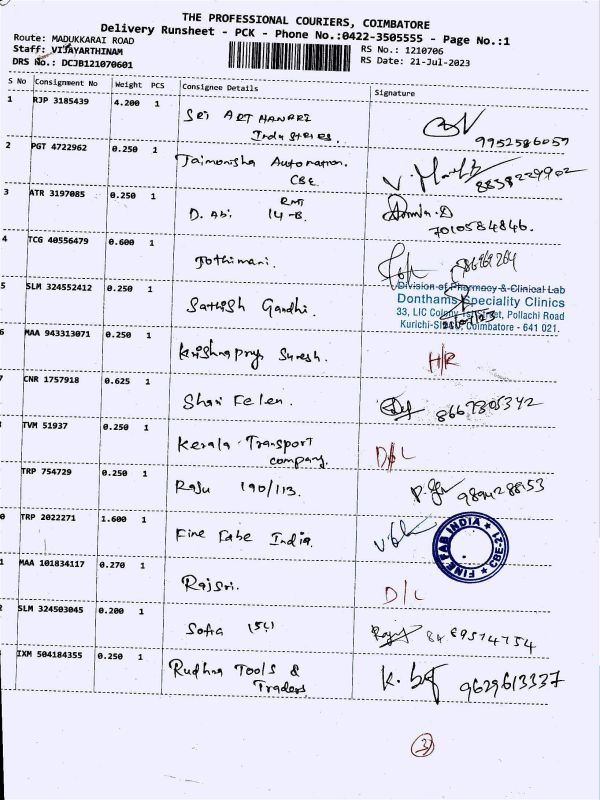 THE PROFESSIONAL COURIERS, COIMBATORE
Delivery Runsheet - PCK - Phone No.:0422-3505555 - Page No.:1
Route: MADUKKARAI ROAD
Staff: VIJAYARTHINAM
RS No.: 1210706
DRS No.: DCJB121070601
RS Date: 21-Jul-2023
S No Consignment No Weight PCS Consignee Details Signature
1 RJP 3185439 4.200 1 Sri ART HANDRI
Industries.
9952586057
2 PGT 4722962 0.250 1 Jaimonisha Automation.
CBE
8838229902
3 ATR 3197085 0.250 1 D. Abi RMT
14-B.
7010584846.
4 TCG 40556479 0.600 1 Jothimani.
5 SLM 324552412 0.250 1 Sathish Gandhi.
Division of Pharmacy & Clinical Lab
Donthams Speciality Clinics
33, LIC Colony, Street, Pollachi Road
Coimbatore - 641 021.
6 MAA 943313071 0.250 1 Krishnapriya Suresh. H/R
7 CNR 1757918 0.625 1 Shari Felen. 8667805342
TVM 51937 0.250 1 Kerala Transport
company. D/L
TRP 754729 0.250 1 Raju 190/113.
0 TRP 2022271 1.600 1 Fine Fabe India.
FINE FAB INDIA CBE-21
1 MAA 101834117 0.270 1 Rajsri. D/L
2 SLM 324503045 0.200 1 Sofia 151
IXM 504184355 0.250 1 Rudhra Tools &
Traders
9629613337
3